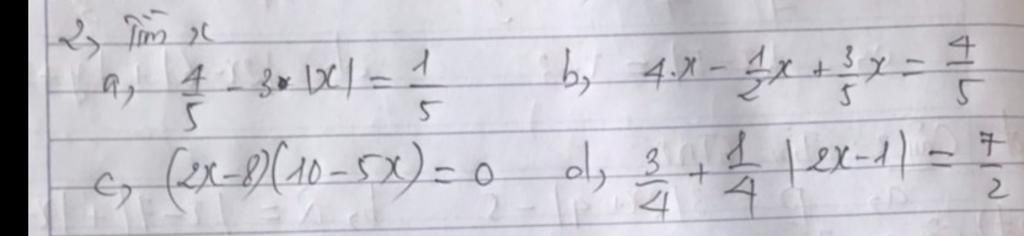 2, Tìm x
a, 4/5 - 3 • |x| = 1/5 b, 4.x - 1/2x + 3/5x = 4/5
c, (2x-8)(10-5x)=0 d, 3/4 + 1/4 |2x-1| = 7/2